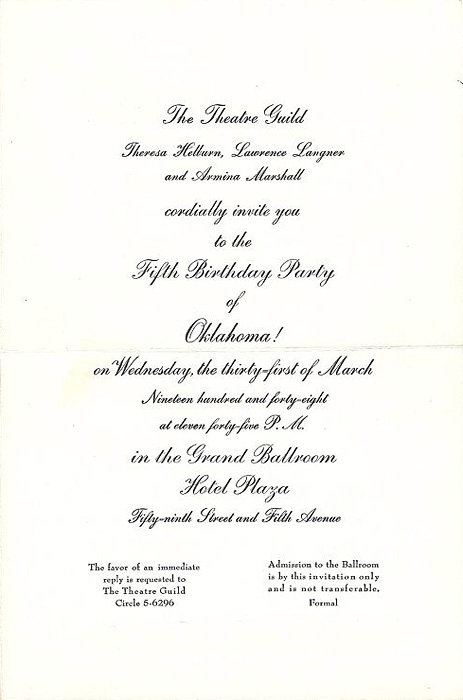 The Theatre Guild
Theresa Helburn, Lawrence Langner
and Armina Marshall
cordially invite you
to the
Fifth Birthday Party
of
Oklahoma!
on Wednesday, the thirty-first of March
Nineteen hundred and forty-eight
at eleven forty-five P. M.
in the Grand Ballroom
Hotel Plaza
Fifty-ninth Street and Fifth Avenue
The favor of an immediate
reply is requested to
The Theatre Guild
Circle 5-6296
Admission to the Ballroom
is by this invitation only
and is not transferable.
Formal